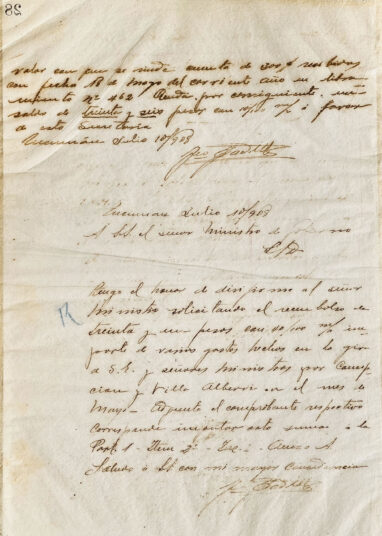 28
valor con que se rinde cuenta de 300 $ recibidos
con fecha 18 de Mayo del corriente año en libra
miento Nº 462 Queda por consiguiente un
saldo de treinta y seis pesos con m/n á favor
de esta Secretaría
Tucumán Julio 10/908
Padilla
Tucumán Julio 10/908
A S.S. el señor Ministro de Gobierno
S/D
Tengo el honor de dirijirme al señor
Ministro solicitando el reembolso de
treinta y un pesos con 00/00 m/n im
porte de varios gastos hechos en la gira
a S.E. y señores Ministros por Concep
cion y Villa Alberdi en el mes de
Mayo - Adjunto el comprobante respectivo
corresponde imputar esta suma a la
Part. 1 - Item 3º - Inc. - Anexo A
Saludo á SS con mi mayor Consideración
Padilla